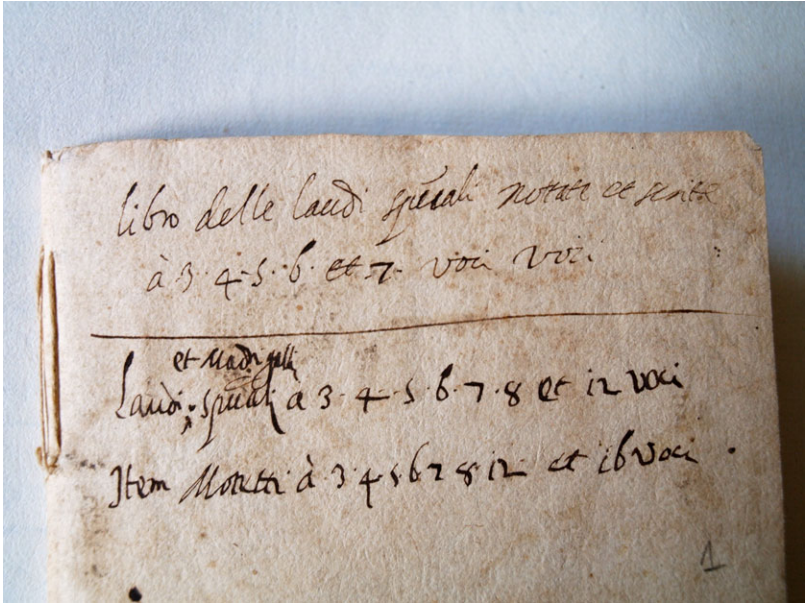 libro delle laudi spũali notate et scritte
à 3· 4· 5· 6· et 7· voci voci
et Madrigalli
Laudi spũali à 3· 4· 5· 6· 7· 8 et 12 voci
Item Motetti à 3 4 5 6 7 8 12 et 16 voci ·
1